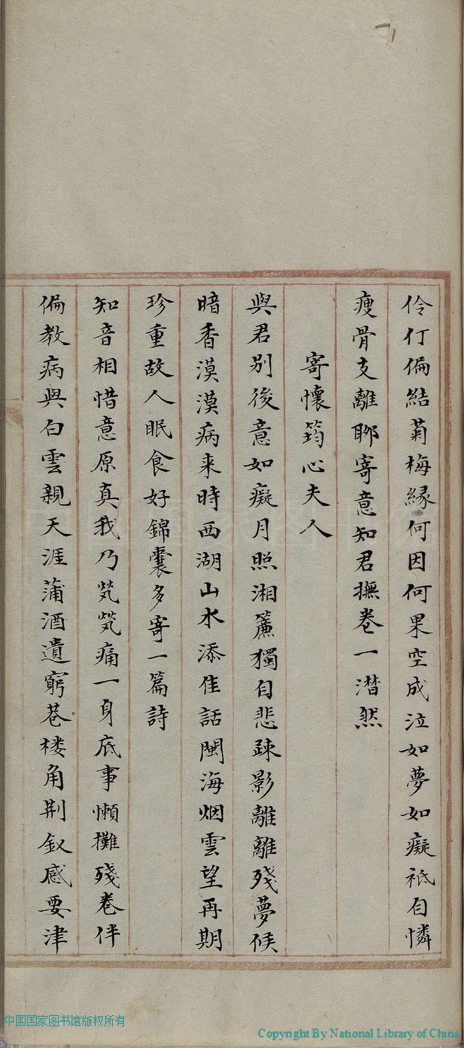 伶仃偏結菊梅緣何因何果空成泣如夢如癡祗自憐
瘦骨支離聊寄意知君撫卷一潸然
寄懷筠心夫人
與君別後意如癡月照湘簾獨自悲疎影離離殘夢候
暗香漠漠病来時西湖山水添佳話閩海烟雲望再期
珍重故人眠食好錦囊多寄一篇詩
知音相惜意原真我乃煢煢痛一身底事懶攤殘卷伴
偏教病與白雲親天涯蒲酒遺窮巷楼角荆釵感要津
中国国家图书馆版权所有
Copyright By National Library of China